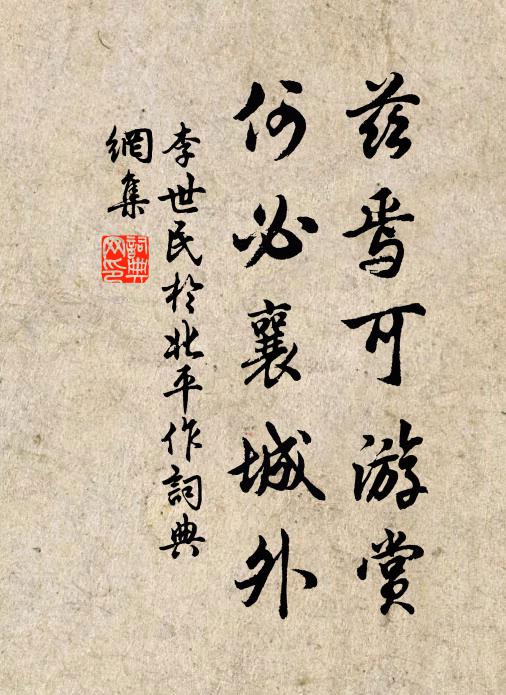 茲焉可游賞
何必襄城外
李世民於北平作詞典
網集
詞典網印